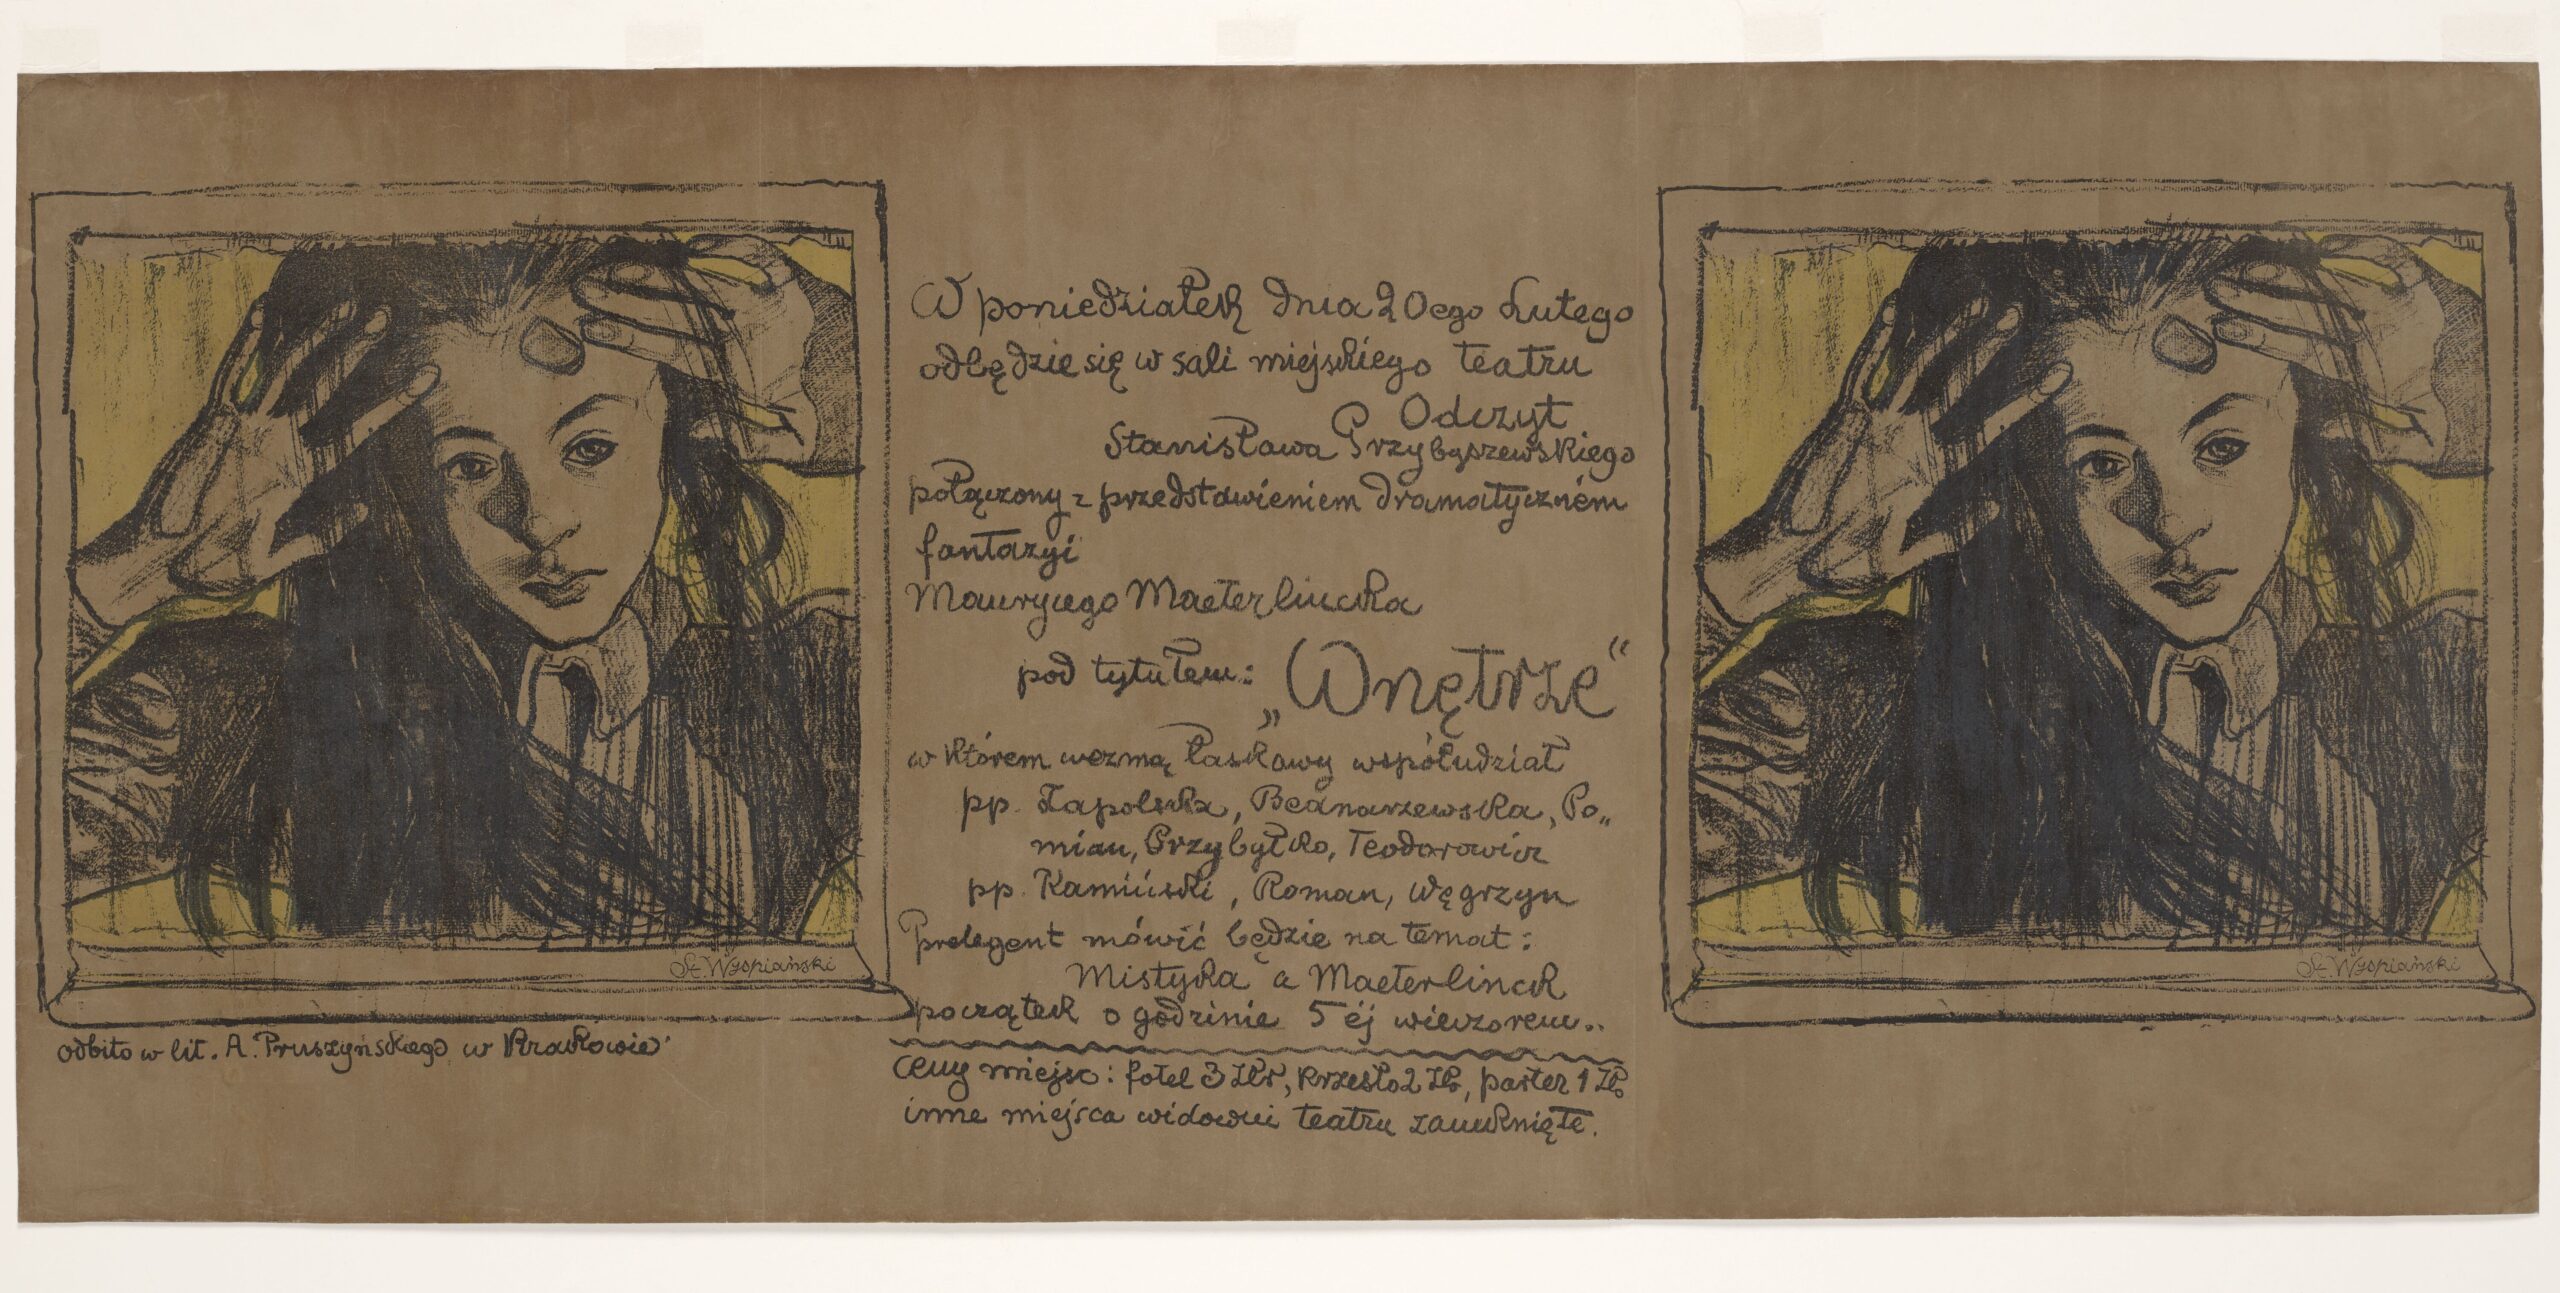 W poniedziałek dnia 20ego Lutego
odbędzie się w sali miejskiego teatru
Odczyt
Stanisława Przybyszewskiego
połączony z przedstawieniem dramatyczném
fantazyi
Maurycego Maeterlincka
pod tytułem: „Wnętrze“
w którem wezmą łaskawy współudział
pp. Zapolska, Bednarzewska, Po„
mian, Przybyłko, Teodorowicz
pp. Kamiński, Roman, Węgrzyn
Prelegent mówić będzie na temat:
Mistyka a Maeterlinck
początek o godzinie 5 éj wieczorem..
ceny miejsc: fotel 3 Złr, krzesło 2 Złr, parter 1 Złr
inne miejsca widowni teatru zamknięte.
St. Wyspiański
odbito w lit. A. Pruszyńskiego w Krakowie
St. Wyspiański